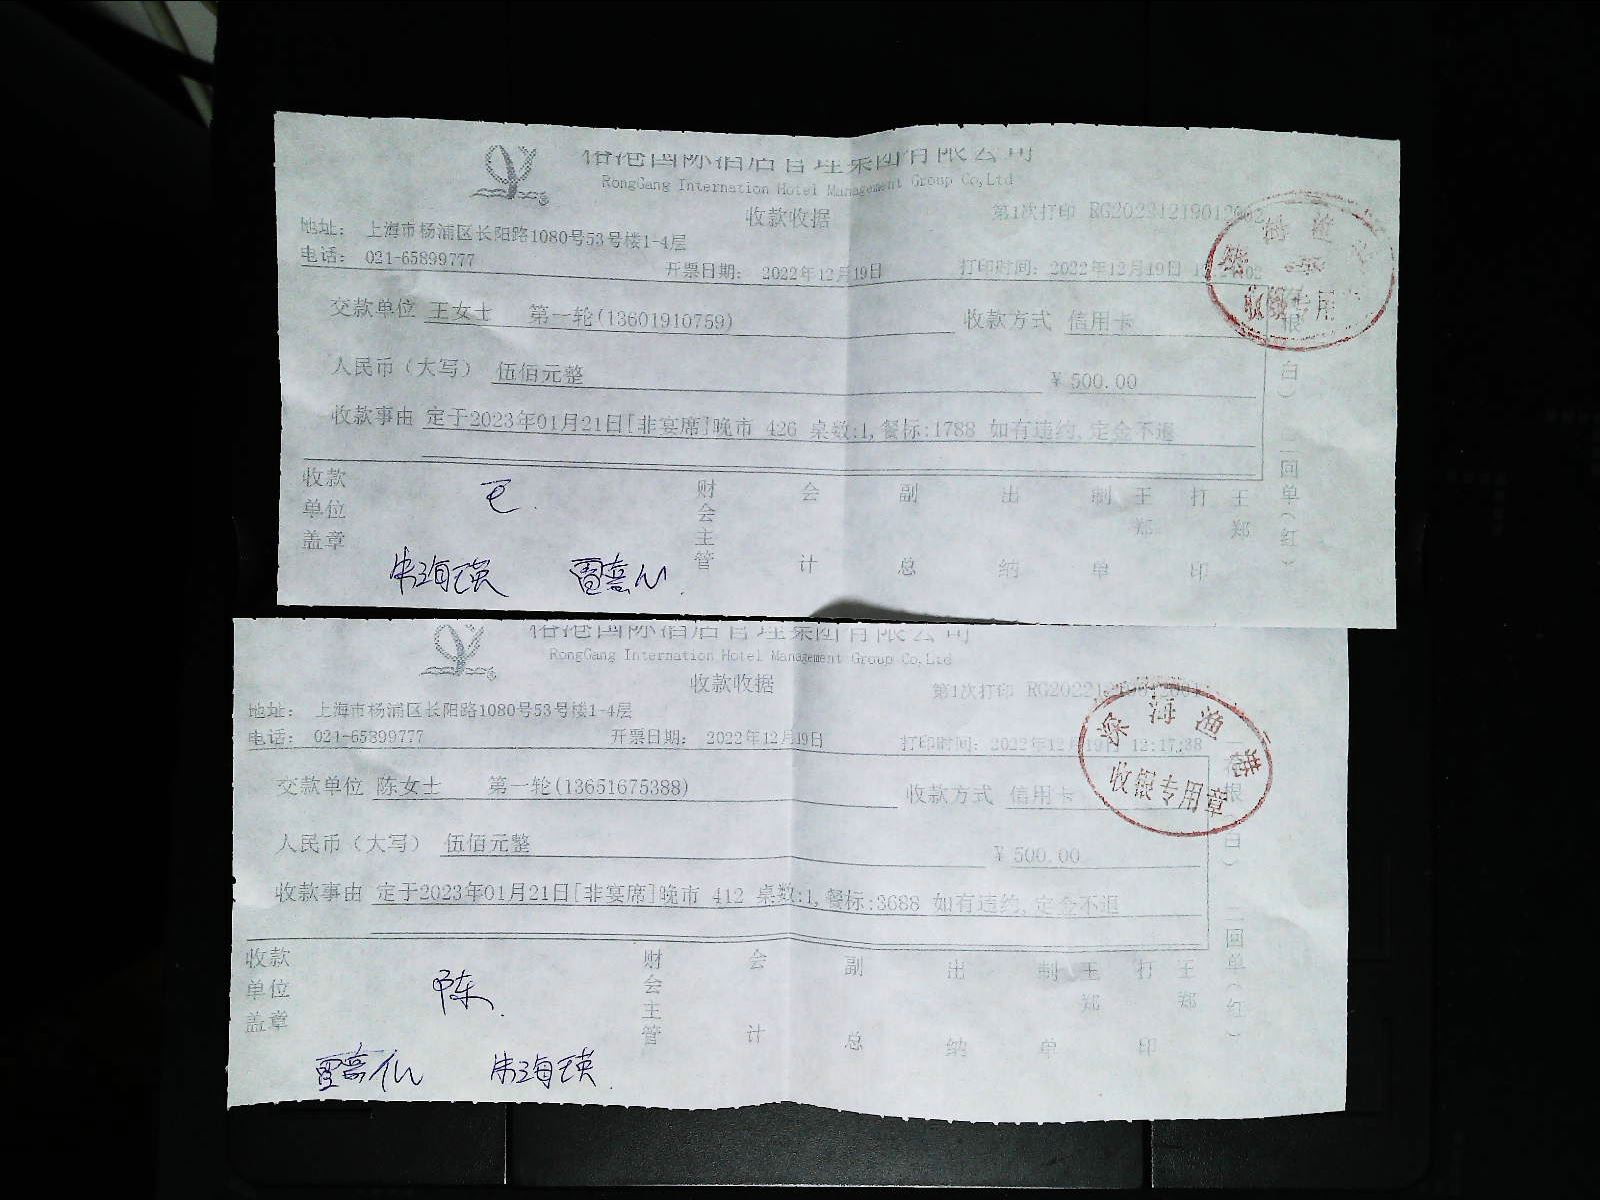 榕港国际酒店管理集团有限公司
RongGang Internation Hotel Management Group Co,Ltd
收款收据
第1次打印 RG20221219012002
地址： 上海市杨浦区长阳路1080号53号楼1-4层
电话： 021-65899777
开票日期： 2022年12月19日
打印时间：2022年12月19日
交款单位 王女士 第一轮(13601910759)
收款方式 信用卡
人民币（大写） 伍佰元整
¥ 500.00
收款事由 定于2023年01月21日[非宴席]晚市 426 桌数:1,餐标:1788 如有违约,定金不退
收款单位盖章
财会主管
会计
副总
出纳
制单 王郑
打印 王郑
根（白） 二回单（红）
深海渔港
收银专用章
榕港国际酒店管理集团有限公司
RongGang Internation Hotel Management Group Co,Ltd
收款收据
第1次打印
地址： 上海市杨浦区长阳路1080号53号楼1-4层
电话： 021-65899777
开票日期： 2022年12月19日
打印时间：2022年12月19日 12:17:38
交款单位 陈女士 第一轮(13651675388)
收款方式 信用卡
人民币（大写） 伍佰元整
¥ 500.00
收款事由 定于2023年01月21日[非宴席]晚市 412 桌数:1,餐标:3688 如有违约,定金不退
收款单位盖章
陈
财会主管
会计
副总
出纳
制单 王郑
打印 王郑
根（白） 二回单（红）
深海渔港
收银专用章